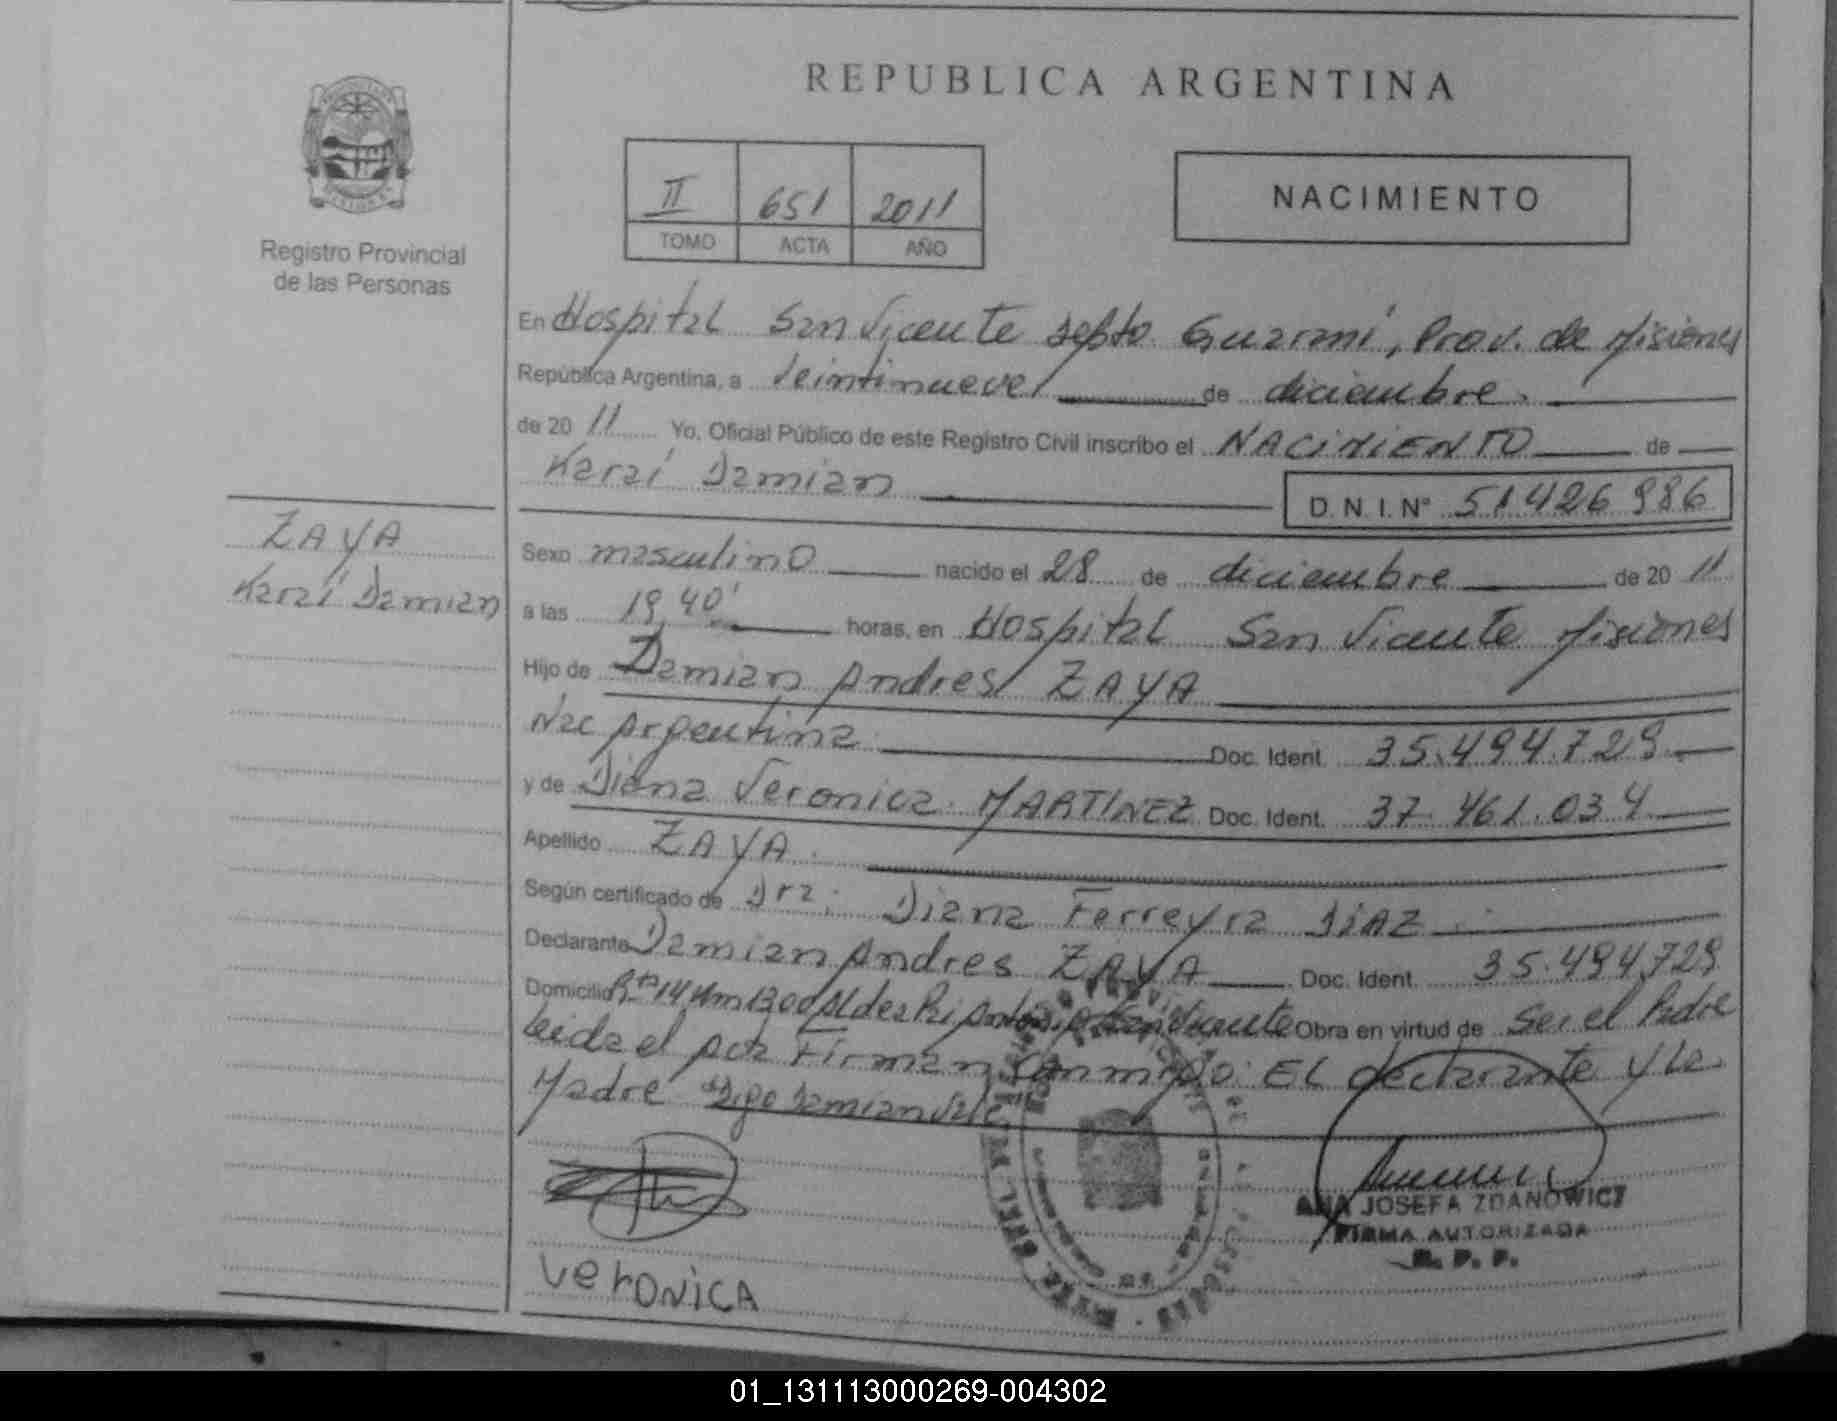 REPUBLICA ARGENTINA
II 651 2011
TOMO ACTA AÑO
NACIMIENTO
Registro Provincial
de las Personas
En Hospital San Vicente Depto. Guaraní, Prov. de Misiones
República Argentina, a Veintinueve de diciembre.
de 20 11 Yo, Oficial Público de este Registro Civil inscribo el NACIMIENTO de
Karaí Damian
D. N. I. Nº 51.426.986
ZAYA
Karaí Damian
Sexo masculino nacido el 28 de diciembre de 20 11
a las 19,40' horas, en Hospital San Vicente Misiones
Hijo de Damian Andres ZAYA
Nac Argentina Doc. Ident. 35.494.729.
y de Diana Veronica MARTINEZ Doc. Ident. 37.461.034
Apellido ZAYA.
Según certificado de Dra: Diana Ferreyra DIAZ
Declarante Damian Andres ZAYA Doc. Ident. 35.494.729
Domicilio Rta 14 Km 1300 Aldea San Vicente Obra en virtud de Ser el Padre
leida el acta Firman conmigo: EL declarante y la
Madre Digo Damian Vale
VERONICA
ANA JOSEFA ZDANOWICZ
FIRMA AUTORIZADA
R. P. P.
01_131113000269-004302